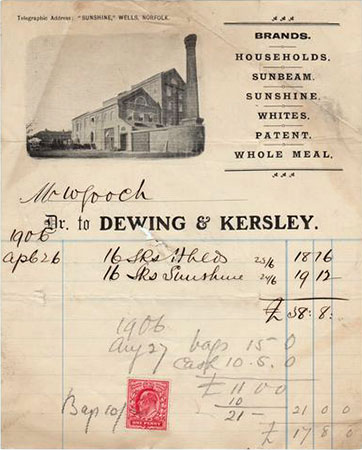 Telegraphic Address: "SUNSHINE," WELLS, NORFOLK.
BRANDS.
HOUSEHOLDS.
SUNBEAM.
SUNSHINE.
WHITES.
PATENT.
WHOLE MEAL.
Mr W Gooch
Dr. to DEWING & KERSLEY.
1906
Ap 26 16 Sks Hhlds 23/6 18 16
16 Sks Sunshine 24/6 19 12
£ 38: 8:
1906
Aug 27 bags 15 0
Cash 10.5.0
£ 11 0 0
Bags 10/ 10
21 - 21 0 0
£ 17 8 0
ONE PENNY